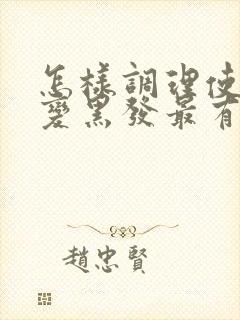 怎樣調理使
變黑發最有
趙忠賢